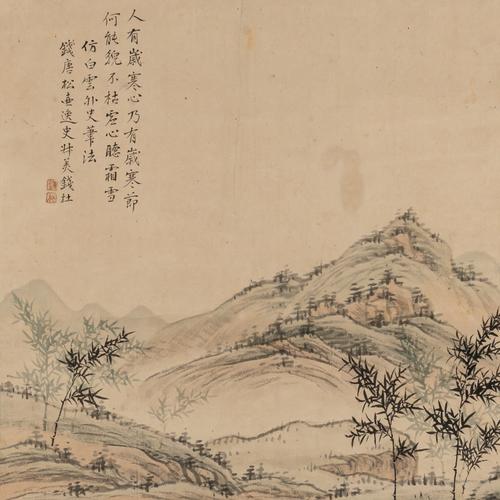 人有歲寒心乃有歲寒節
何能貌不枯虛心聽霜雪
仿白雲外史筆法
錢唐松壺逸史叔美錢杜